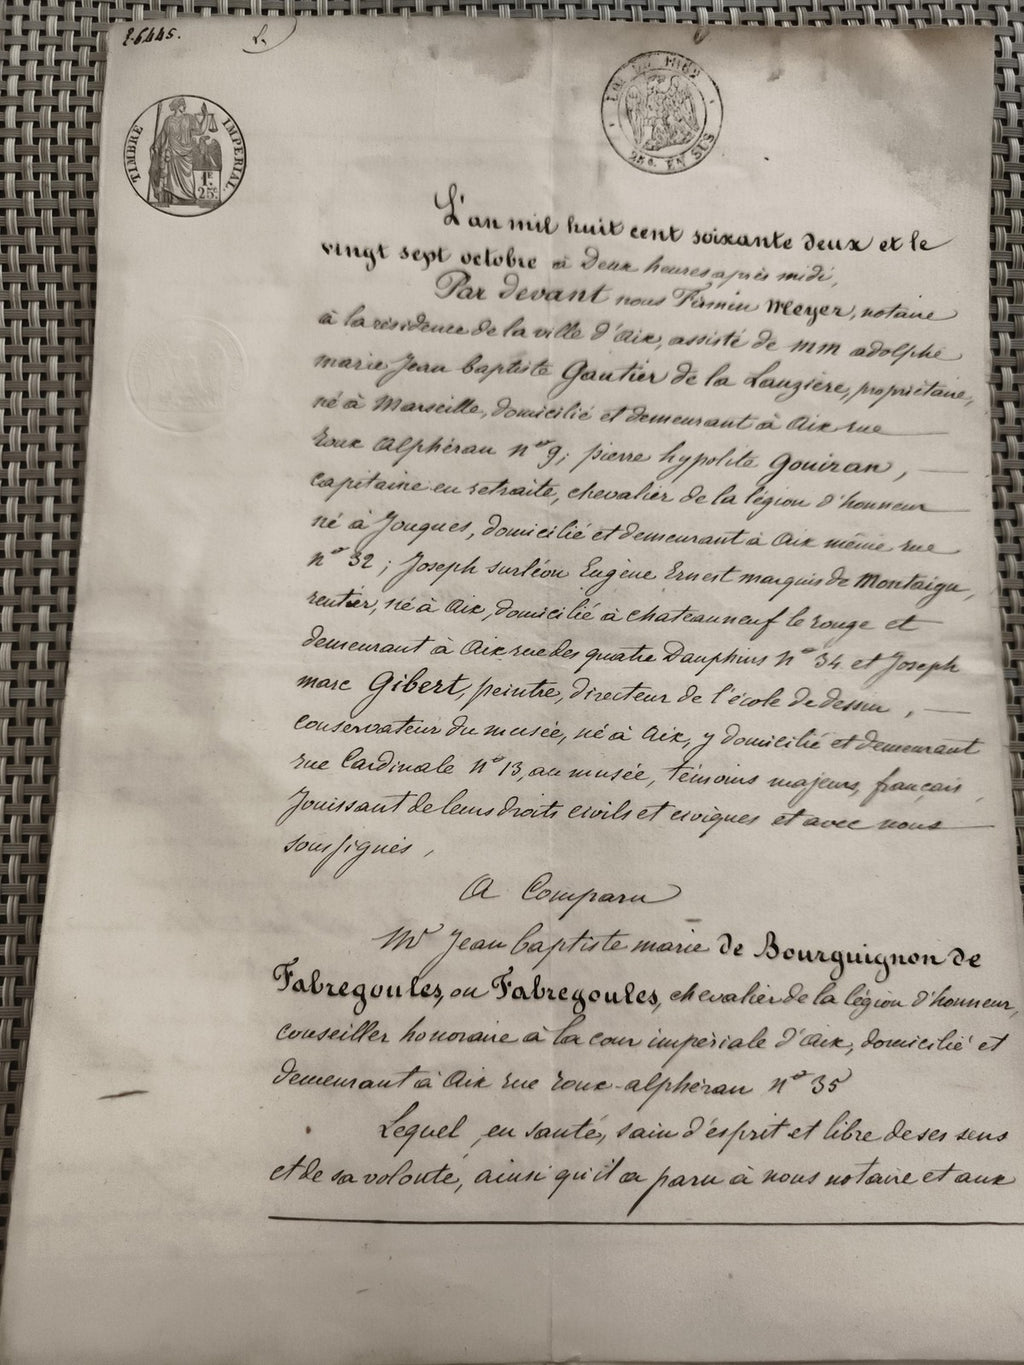 26445.
TIMBRE IMPERIAL
1F.
25c.
LOI DE 1862
25c. EN SUS
L'an mil huit cent soixante deux et le
vingt sept octobre à deux heures après midi,
Par devant nous Firmin Meyer, notaire
à la résidence de la ville d'Aix, assisté de mm adolphe
marie Jean baptiste Gautier de la Lauzière, propriétaire,
né à Marseille, domicilié et demeurant à Aix rue
roux Alphéran n° 9; pierre hypolite Gouiran,
capitaine en retraite, chevalier de la légion d'honneur
né à Jouques, domicilié et demeurant à Aix même rue
n° 32; Joseph surléon Eugène Ernest marquis de Montaigu,
rentier, né à Aix, domicilié à chateauneuf le rouge et
demeurant à Aix rue des quatre Dauphins n° 34 et Joseph
marc Gibert, peintre, directeur de l'école de dessin,
conservateur du musée, né à Aix, y domicilié et demeurant
rue Cardinale n° 13, au musée, témoins majeurs, français,
Jouissant de leurs droits civils et civiques et avec nous
soussignés,
A Comparu
Mr Jean baptiste marie de Bourguignon de
Fabregoules, ou Fabregoules, chevalier de la légion d'honneur,
conseiller honoraire à la cour impériale d'Aix, domicilié et
demeurant à Aix rue roux-alphéran n° 35
Lequel, en santé, sain d'esprit et libre de ses sens
et de sa volonté, ainsi qu'il a paru à nous notaire et aux